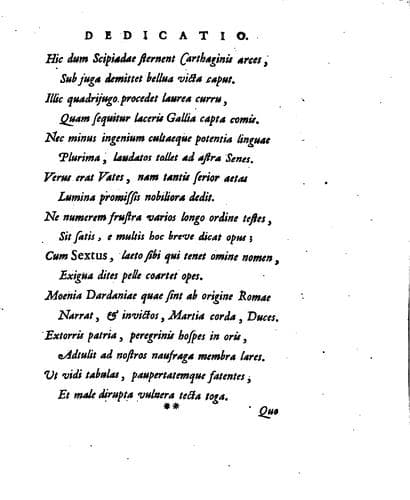 DEDICATIO.
Hic dum Scipiadae sternent Carthaginis arces,
Sub juga demittet bellua victa caput.
Illic quadrijugo procedet laurea curru,
Quam sequitur laceris Gallia capta comis.
Nec minus ingenium cultaeque potentia linguae
Plurima, laudatos tollet ad astra Senes.
Verus erat Vates, nam tantis serior aetas
Lumina promissis nobiliora dedit.
Ne numerem frustra varios longo ordine testes,
Sit satis, e multis hoc breve dicat opus;
Cum Sextus, laeto sibi qui tenet omine nomen,
Exigua dites pelle coartet opes.
Moenia Dardaniae quae sint ab origine Romae
Narrat, & invictos, Martia corda, Duces.
Extorris patria, peregrinis hospes in oris,
Adtulit ad nostros naufraga membra lares.
Ut vidi tabulas, paupertatemque fatentes,
Et male dirupta vulnera tecta toga.
**
Quo